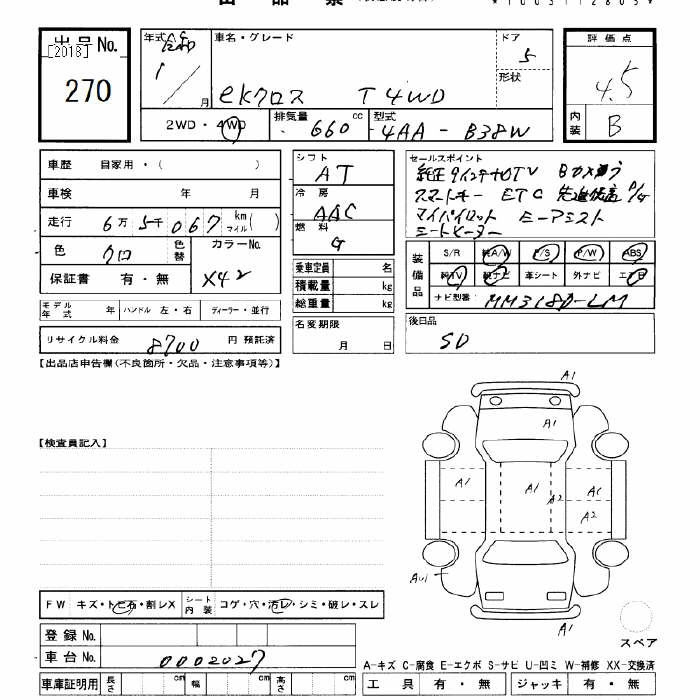 出品票
*1003112805*
出品No.
[2018]
270
年式
年
/月
車名・グレード
ekクロス T 4WD
ドア
5
形状
評価点
4.5
内装
B
2WD・4WD
排気量
660cc
型式
4AA-B38W
車歴 自家用・( )
車検 年 月
走行 6万5千067km マイル( )
色 クロ 色替
カラーNo. X42
保証書 有・無
モデル年式 年 ハンドル 左・右 ディーラー・並行
リサイクル料金 8700 円 預託済
シフト
AT
冷房
AAC
燃料
G
乗車定員 名
積載量 kg
総重量 kg
名変期限
月 日
セールスポイント
純正9インチナビTV Bカメラ
スマートキー ETC 先進快適P/G
マイパイロット ミーアシスト
シートヒーター
装備品
S/R 純A/W P/S P/W ABS
純TV 純ナビ 革シート 外ナビ エアB
ナビ型番 MM318D-LM
後日品
SD
【出品店申告欄(不良箇所・欠品・注意事項等)】
【検査員記入】
A1
A1
A1
A1
A2
A1
A2
A1
FW キズ・トビ石・割レX
シート内装 コゲ・穴・汚レ・シミ・破レ・スレ
登録No.
車台No. 0002027
車庫証明用 長さ cm 幅 cm 高さ cm
スペア
A-キズ C-腐食 E-エクボ S-サビ U-凹ミ W-補修 XX-交換済
工具 有・無 ジャッキ 有・無